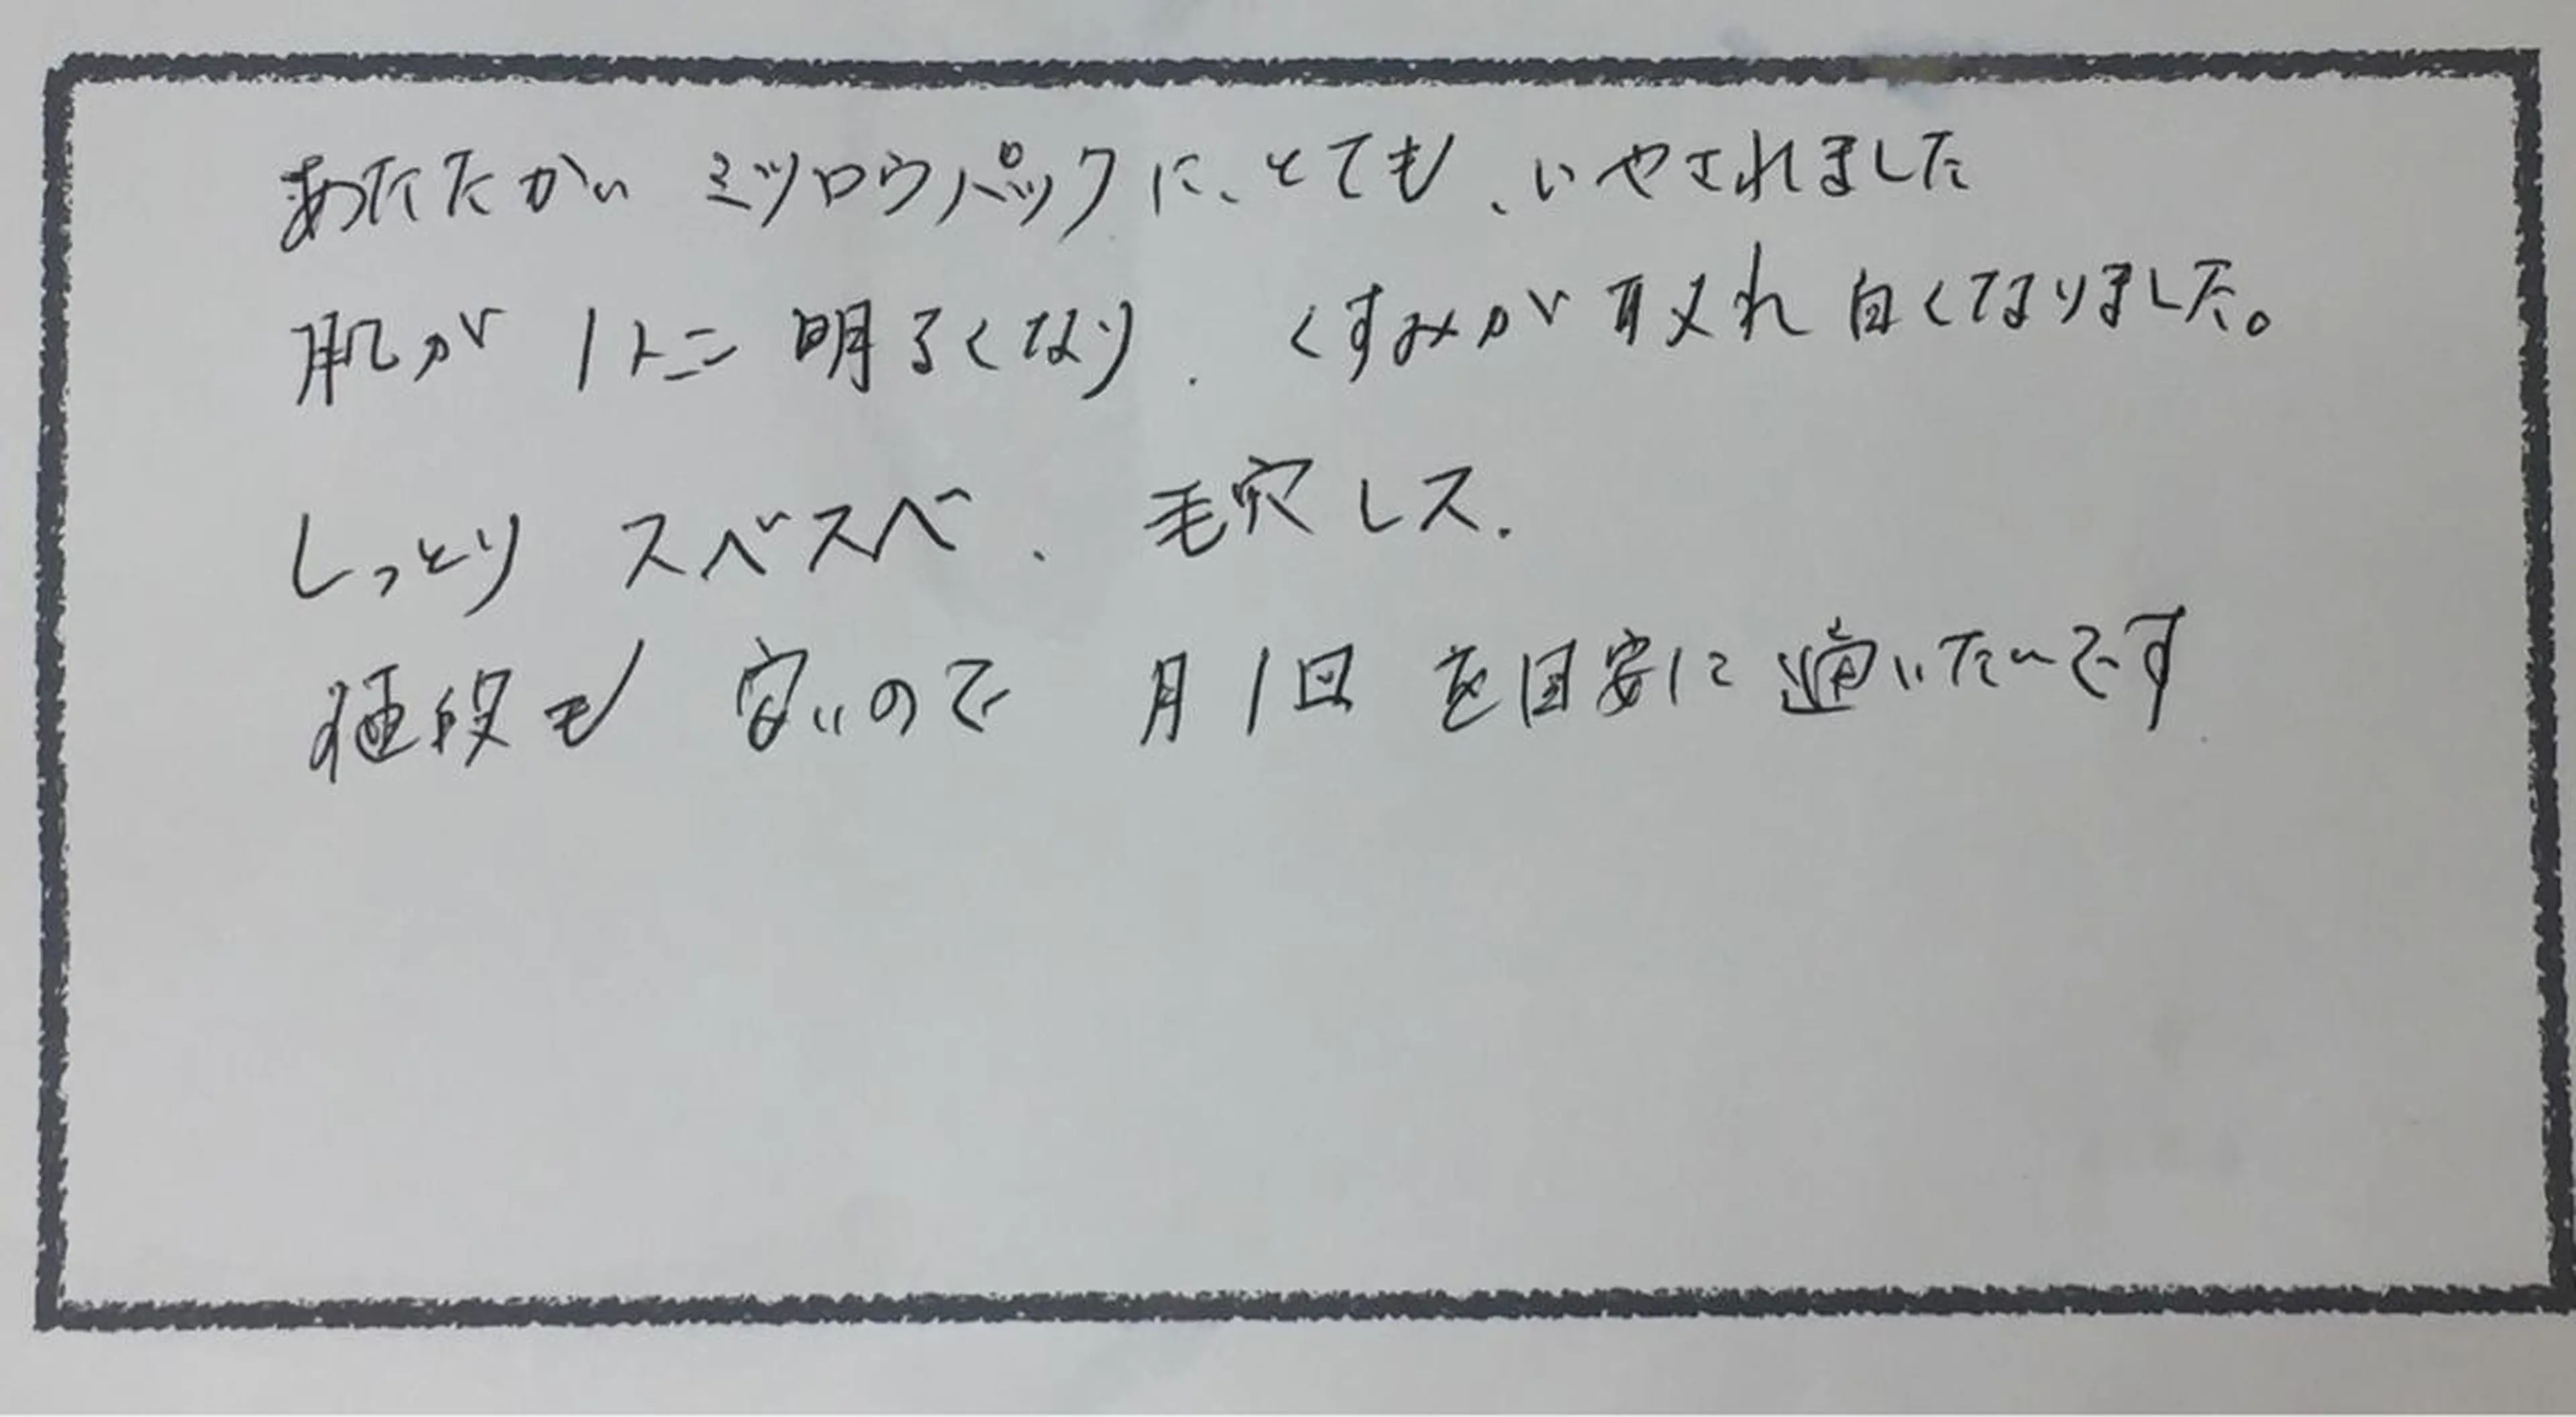 あたたかい ミツロウパックに、とても、いやされました
肌が 1トーン 明るくなり、くすみが取れ 白くなりました。
しっとり スベスベ、毛穴レス、
値段も 安いので 月1回 を目安に 通いたいです